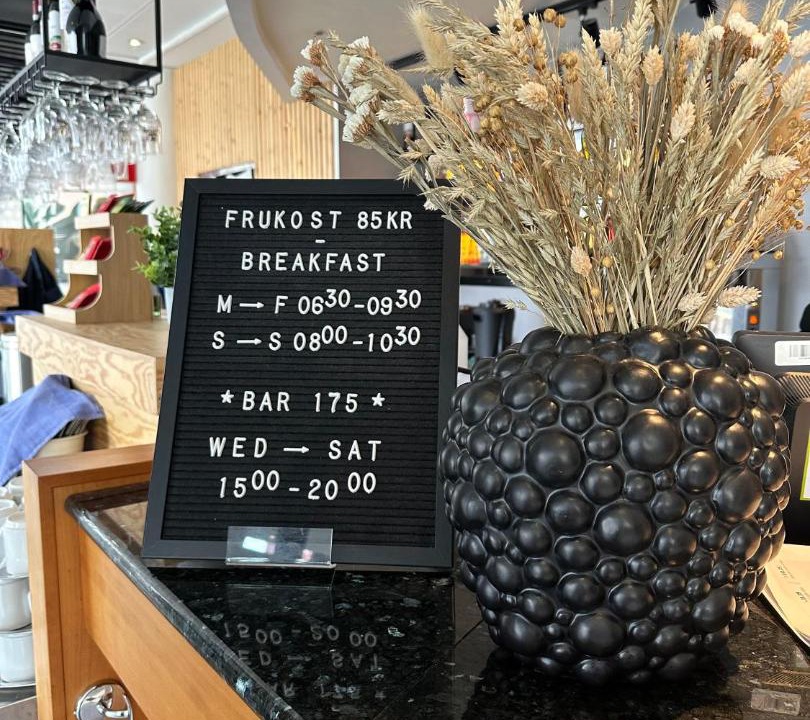 FRUKOST 85KR
-
BREAKFAST
M → F 06³⁰-09³⁰
S → S 08⁰⁰-10³⁰
*BAR 175 *
WED → SAT
15⁰⁰-20⁰⁰